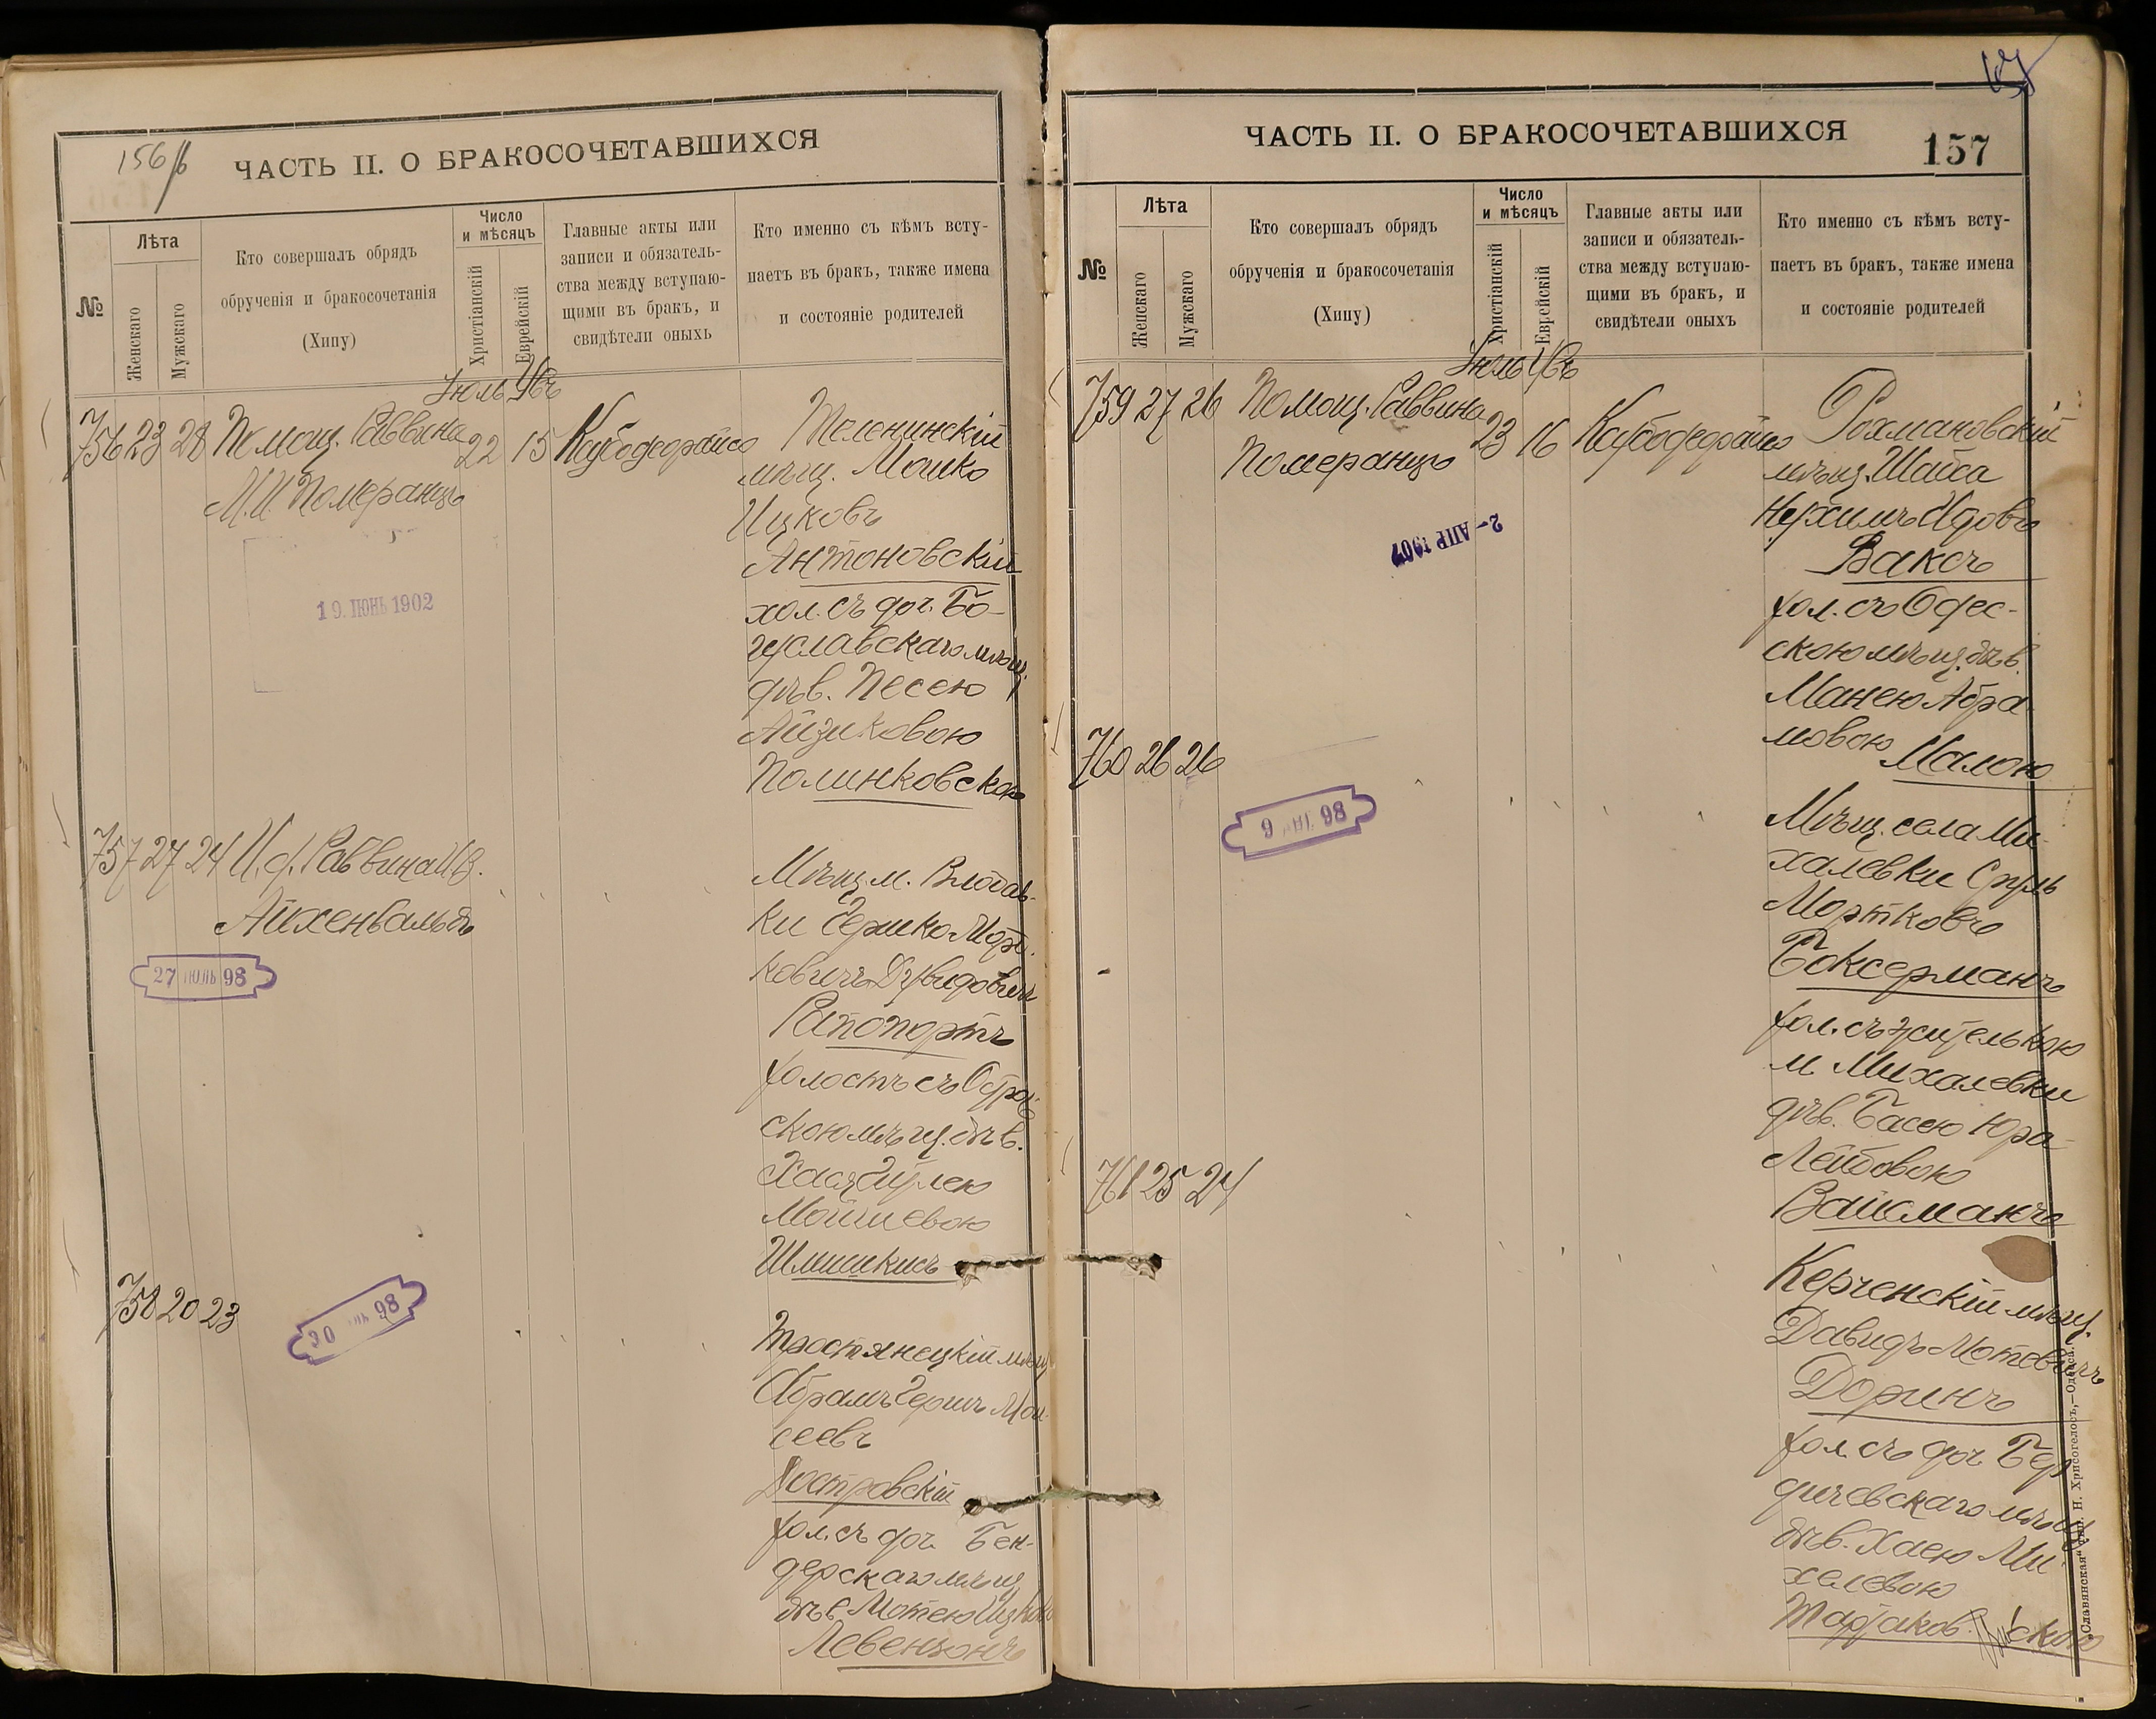 156/б
ЧАСТЬ II. О БРАКОСОЧЕТАВШИХСЯ
№
Лѣта
Женскаго
Мужскаго
Кто совершалъ обрядъ
обрученія и бракосочетанія
(Хипу)
Число
и мѣсяцъ
Христіанскій
Еврейскій
Главные акты или
записи и обязатель-
ства между вступаю-
щими въ бракъ, и
свидѣтели оныхъ
Кто именно съ кѣмъ всту-
паетъ въ бракъ, также имена
и состояніе родителей
Іюль
756 23 28 Помощ. Раввина 22 15
М.И. Померанцъ
мѣщ. Мошко
Ицковъ
Антоновскій
хол. съ доч. Бо-
гуславскаго мѣщ.
дѣв. Песею
Айзиковою
Полинковскою
19. ІЮНЬ 1902
757 27 24 И.д. Раввина
Айхенвальдъ
27 ІЮЛЬ 98
Мѣщ. м. Влодав-
ки Гершко Морд-
ковичъ Дувидовичъ
Рапопортъ
холостъ съ
скою мѣщ. дѣв.
Мошіевою
758 20 23
30 98
Тростянецкій мѣщ
Абрамъ Гершъ Мои-
сеевъ
Достровскій
хол. съ доч. Бен-
дерскаго мѣщ
дѣв. Мотею Ицков
Левензонъ
ЧАСТЬ II. О БРАКОСОЧЕТАВШИХСЯ
157
№
Лѣта
Женскаго
Мужскаго
Кто совершалъ обрядъ
обрученія и бракосочетанія
(Хипу)
Число
и мѣсяцъ
Христіанскій
Еврейскій
Главные акты или
записи и обязатель-
ства между вступаю-
щими въ бракъ, и
свидѣтели оныхъ
Кто именно съ кѣмъ всту-
паетъ въ бракъ, также имена
и состояніе родителей
Іюль
759 27 26 Помощ. Раввина 23 16
Померанцъ
2- АПР 1907
Рохмановскій
мѣщ. Шайса
Нухимъ Идовъ
Ваксъ
хол. съ Одес-
скою мѣщ. дѣв.
Манею Абра-
мовою Малою
760 26 26
98
Мѣщ. села Ми-
халевки Сруль
Мортковъ
Боксерманъ
хол. съ жителькою
м. Михалевки
дѣв. Басею Юра-
Лейбовою
Вайсманъ
761 25 24
Керченскій мѣщ.
Давидъ Мотевичъ
Доринъ
хол. съ доч. Бер
дичевскаго мѣщ
дѣв. Хаею Ми-
хелевою
„Славянская“ тип. Н. Хрисогелосъ,—Одесса.